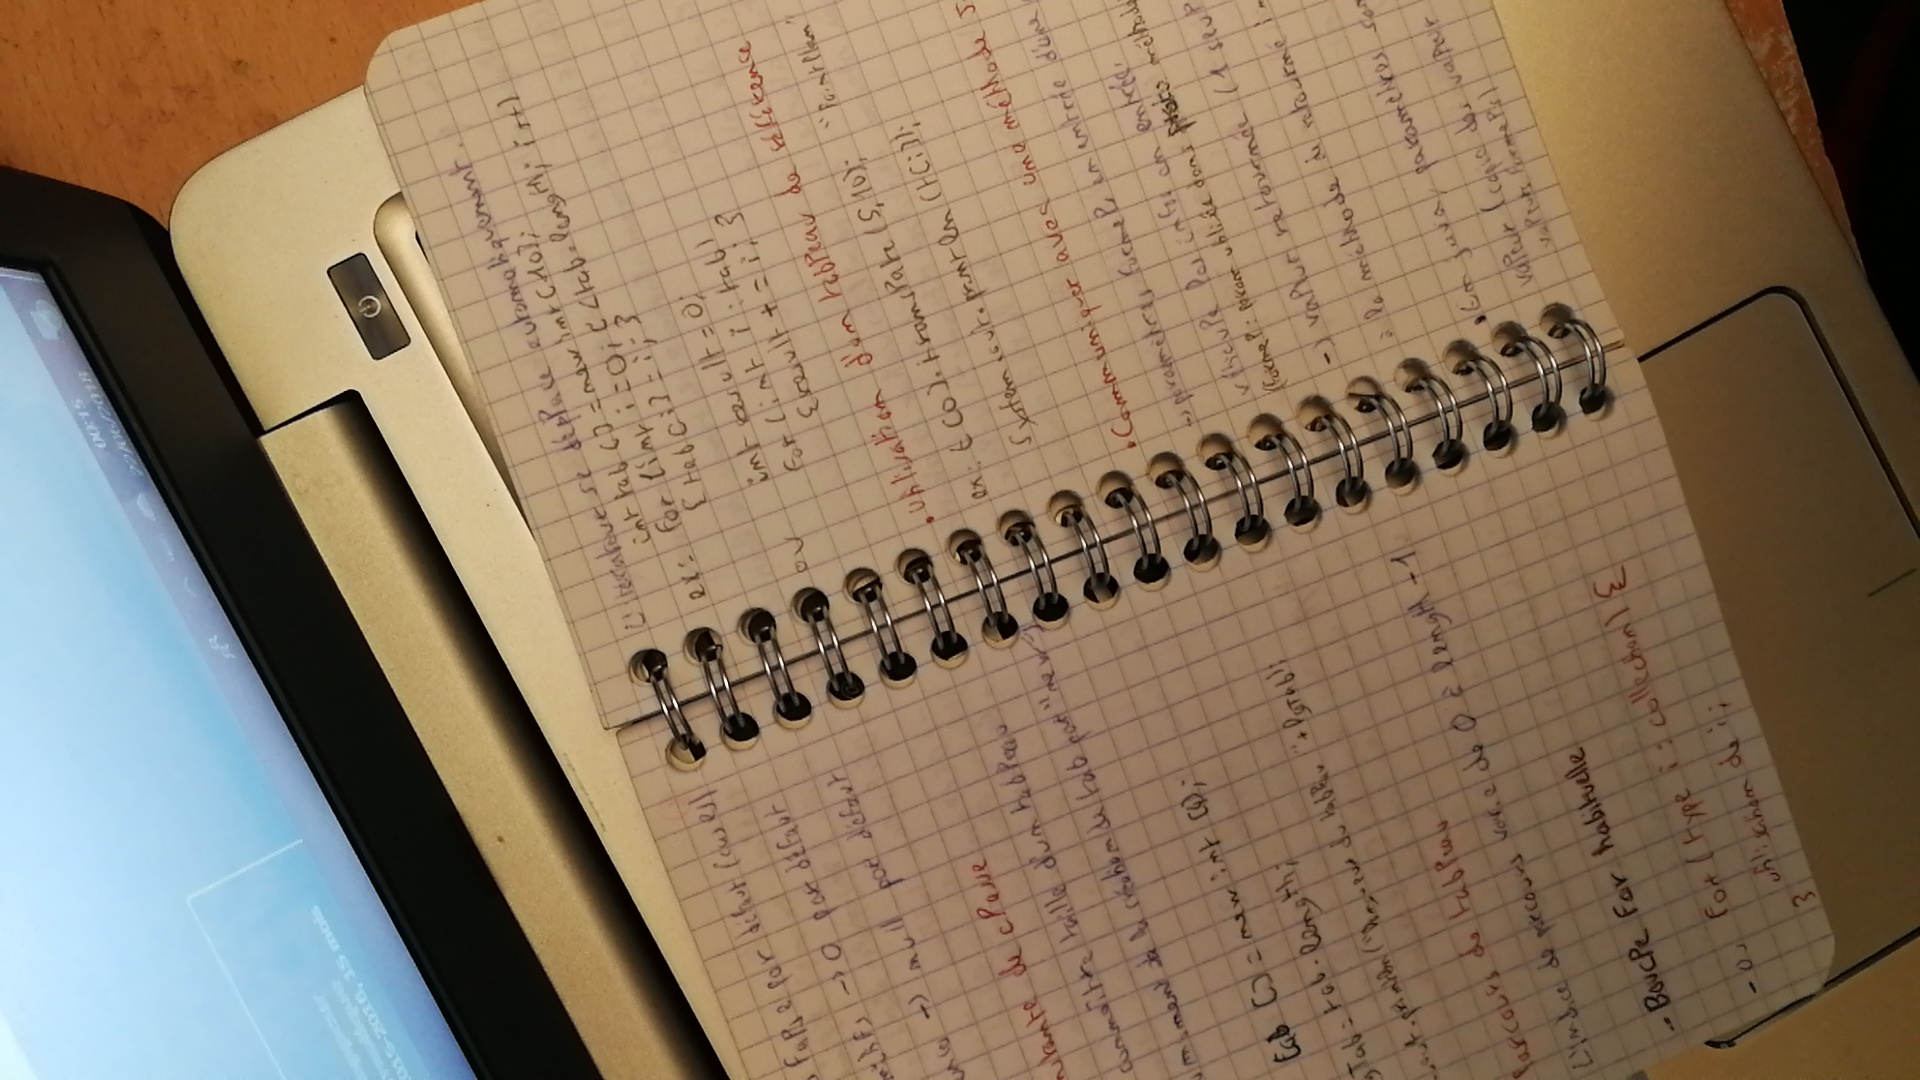 00:15
22/06/2018
2015-2016, 15 mois
False par défaut
→ 0 par défaut
→ null par défaut
de classe
connaître taille d'un tableau
moment de la création du tab par "new"
tab [] = new int [4];
Tab = tab.length;
out.println("longueur du tableau "+lgTab);
Parcours de tableau
L'indice de parcours varie de 0 à length - 1
- Boucle For habituelle
- ou For (type i : collection) {
utilisation de i;
}
L'itérateur se déplace automatiquement.
int tab [] = new int [10];
ex: for (int i = 0; i < tab.length; i++)
{ tab[i] = i; }
int result = 0;
ou for (int i : tab)
{ result += i; }
• Utilisation d'un tableau de référence
"PointPlan"
ex: t[0].translate (5,10);
System.out.println (t[i]);
• Communiquer avec une méthode
→ paramètres formels en entrée d'une
véhicule les infos en entrée.
(formel: param utilisée dans méthode
→ valeur retournée (1 seul
la méthode de retourné
• En java, paramètres
valeur (copie des valeur
valeurs formels)